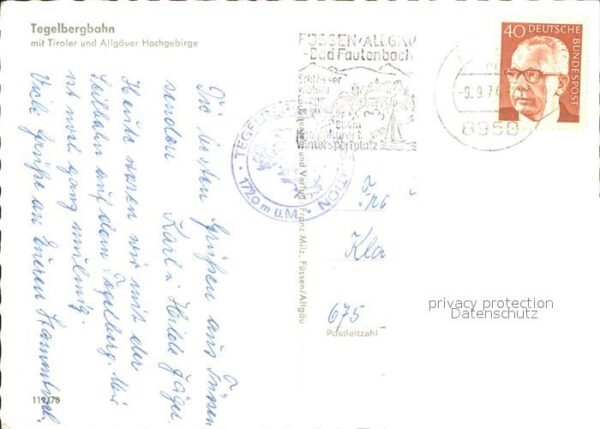 Tegelbergbahn
mit Tiroler und Allgäuer Hochgebirge
Die besten Grüßen aus Füssen
senden Karl u. Hilde Jäger
Heute waren wir mit der
Seilbahn auf dem Tegelberg. Mir
ist noch ganz mulmig.
Viele Grüße an Eueren Stammtisch.
119/70
FÜSSEN-ALLGÄU
-Bad Faulenbach
Wintersportplatz
-9.9.74
8950
40
DEUTSCHE
BUNDESPOST
TEGELBERG
1720 m ü.M.
STATION
und Verlag Franz Milz, Füssen/Allgäu
675
Postleitzahl
privacy protection
Datenschutz